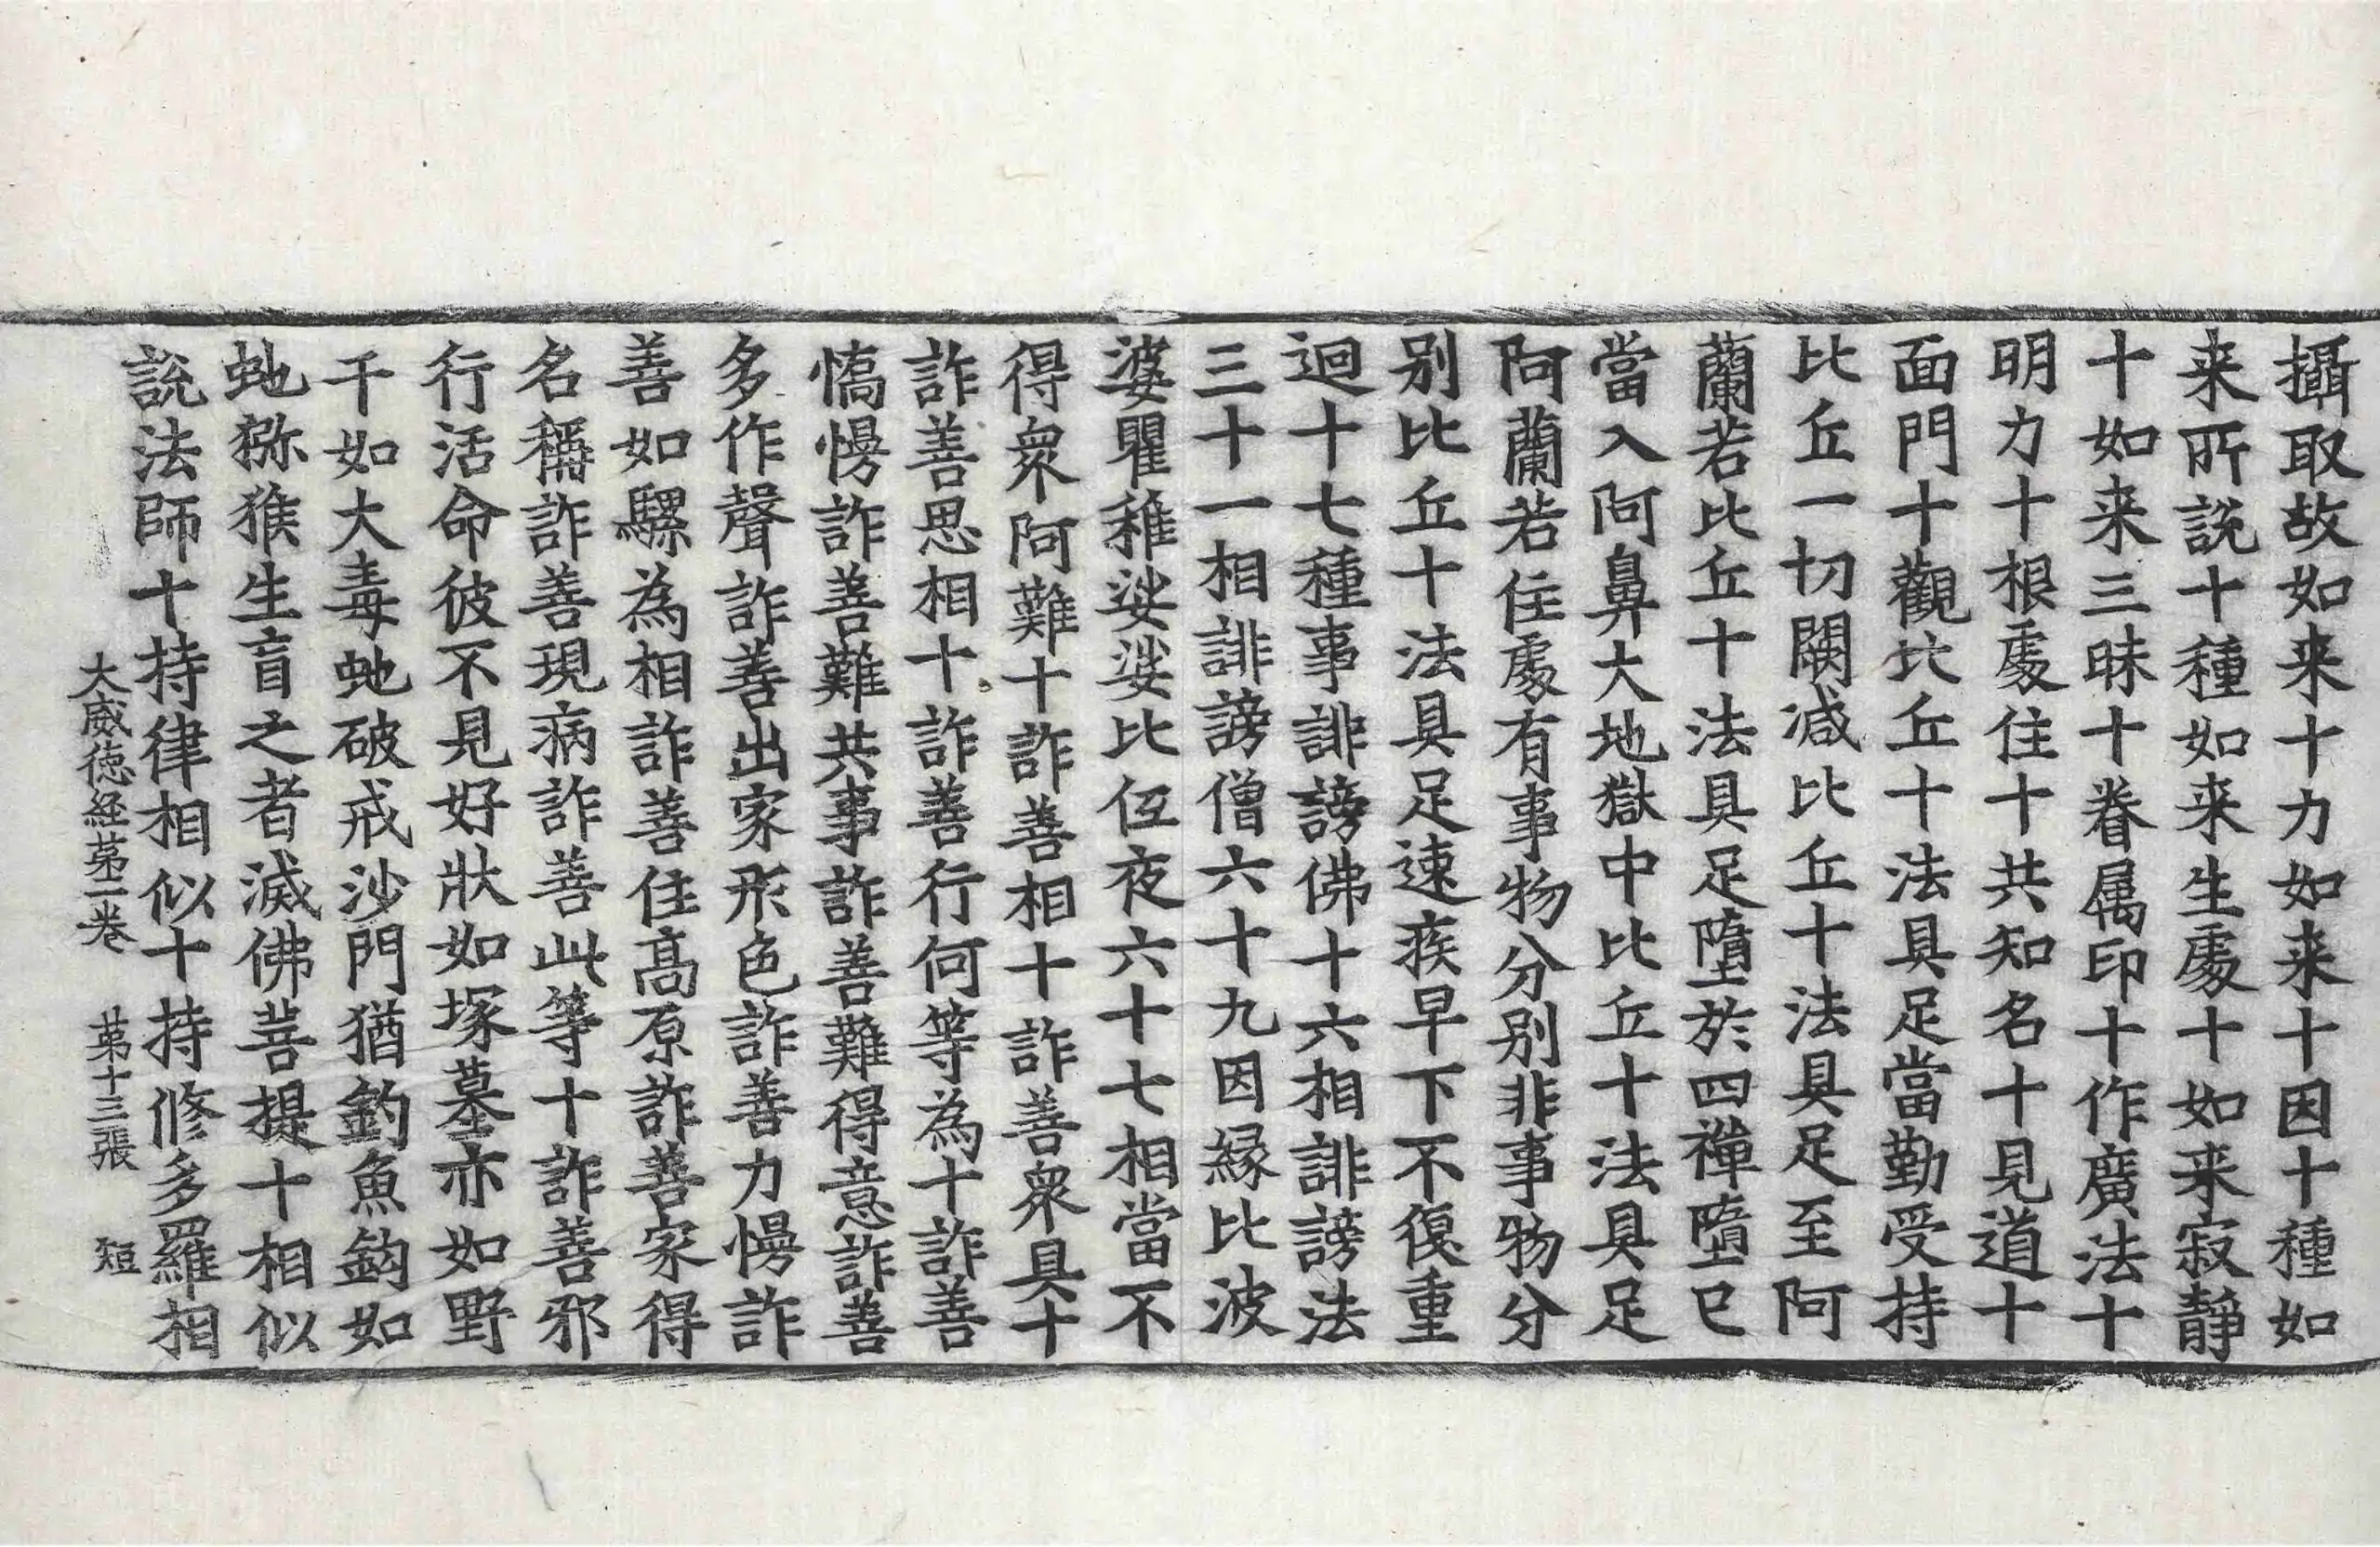 攝取故如来十力如来十因十種如
来所說十種如来生處十如来寂靜
十如来三昧十眷属印十作廣法十
明力十根處住十共知名十見道十
面門十觀比丘十法具足當勤受持
比丘一切闕減比丘十法具足至阿
蘭若比丘十法具足墮於四禪墮已
當入阿鼻大地獄中比丘十法具足
阿蘭若住處有事物分别非事物分
别比丘十法具足速疾早下不復重
迴十七種事誹謗佛十六相誹謗法
三十一相誹謗僧六十九因縁比波
婆瞿稚娑娑比伍夜六十七相當不
得衆阿難十詐善相十詐善衆具十
詐善思相十詐善行何等為十詐善
憍慢詐善難共事詐善難得意詐善
多作聲詐善出家形色詐善力慢詐
善如騾為相詐善住髙原詐善家得
名稱詐善現病詐善此等十詐善邪
行活命彼不見好狀如塚墓亦如野
干如大毒虵破戒沙門猶釣魚鈎如
虵猕猴生盲之者滅佛菩提十相似
說法師十持律相似十持修多羅相
大威徳経苐二卷 苐十三張 短